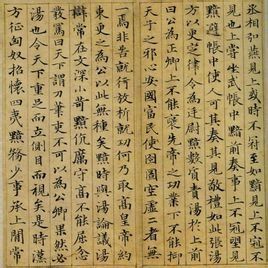 丞相弘燕見上或時不冠至如黯見上不冠不
見也上嘗坐武帳中黯前奏事上不冠望見
黯避帳中使人可其奏其見敬禮如此張湯
方以更定律令為廷尉黯數質責湯於上前
曰公為正卿上不能褒先帝之功業下不能抑
天下之邪心安國富民使囹圄空虛二者無
一焉非苦就行放析就功何乃取高皇帝約
束紛更之為公以此無種矣黯時與湯論議湯
辯常在文深小苛黯伉厲守高不能屈忿
發罵曰天下謂刀筆吏不可以為公卿果然必
湯也令天下重足而立側目而視矣是時漢
方征匈奴招懷四夷黯務少事乘上間常